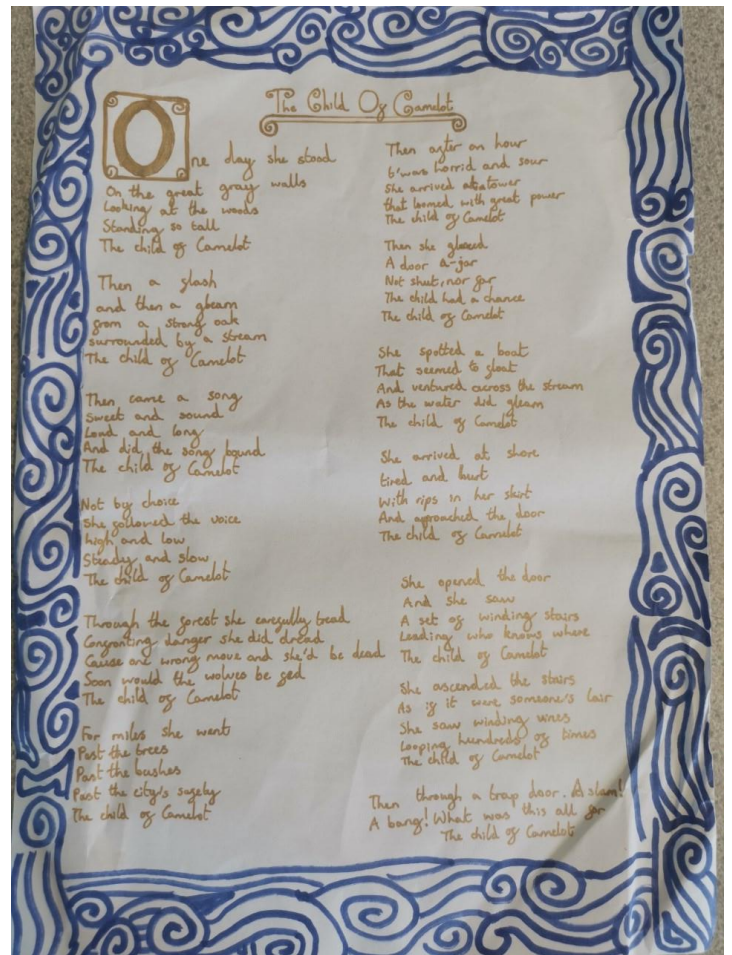 The Child Of Camelot
One day she stood
On the great gray walls
Looking at the woods
Standing so tall
The child of Camelot
Then a flash
and then a gleam
from a strong oak
surrounded by a stream
The child of Camelot
Then came a song
Sweet and sound
Loud and long
And did the song bound
The child of Camelot
Not by choice
She followed the voice
high and low
Steady and slow
The child of Camelot
Through the forest she carefully tread
Confronting danger she did dread
Cause one wrong move and she'd be dead
Soon would the wolves be fed
The child of Camelot
For miles she went
Past the trees
Past the bushes
Past the city's safety
The child of Camelot
Then after an hour
t'was horrid and sour
She arrived at a tower
that loomed with great power
The child of Camelot
Then she
A door a-jar
Not shut, nor far
The child had a chance
The child of Camelot
She spotted a boat
That seemed to float
And ventured across the stream
As the water did gleam
The child of Camelot
She arrived at shore
tired and hurt
With rips in her skirt
And approached the door
The child of Camelot
She opened the door
And she saw
A set of winding stairs
Leading who knows where
The child of Camelot
She ascended the stairs
As if it were someone's lair
She saw winding vines
Looping hundreds of times
The child of Camelot
Then through a trap door. A slam!
A bang! What was this all for
The child of Camelot